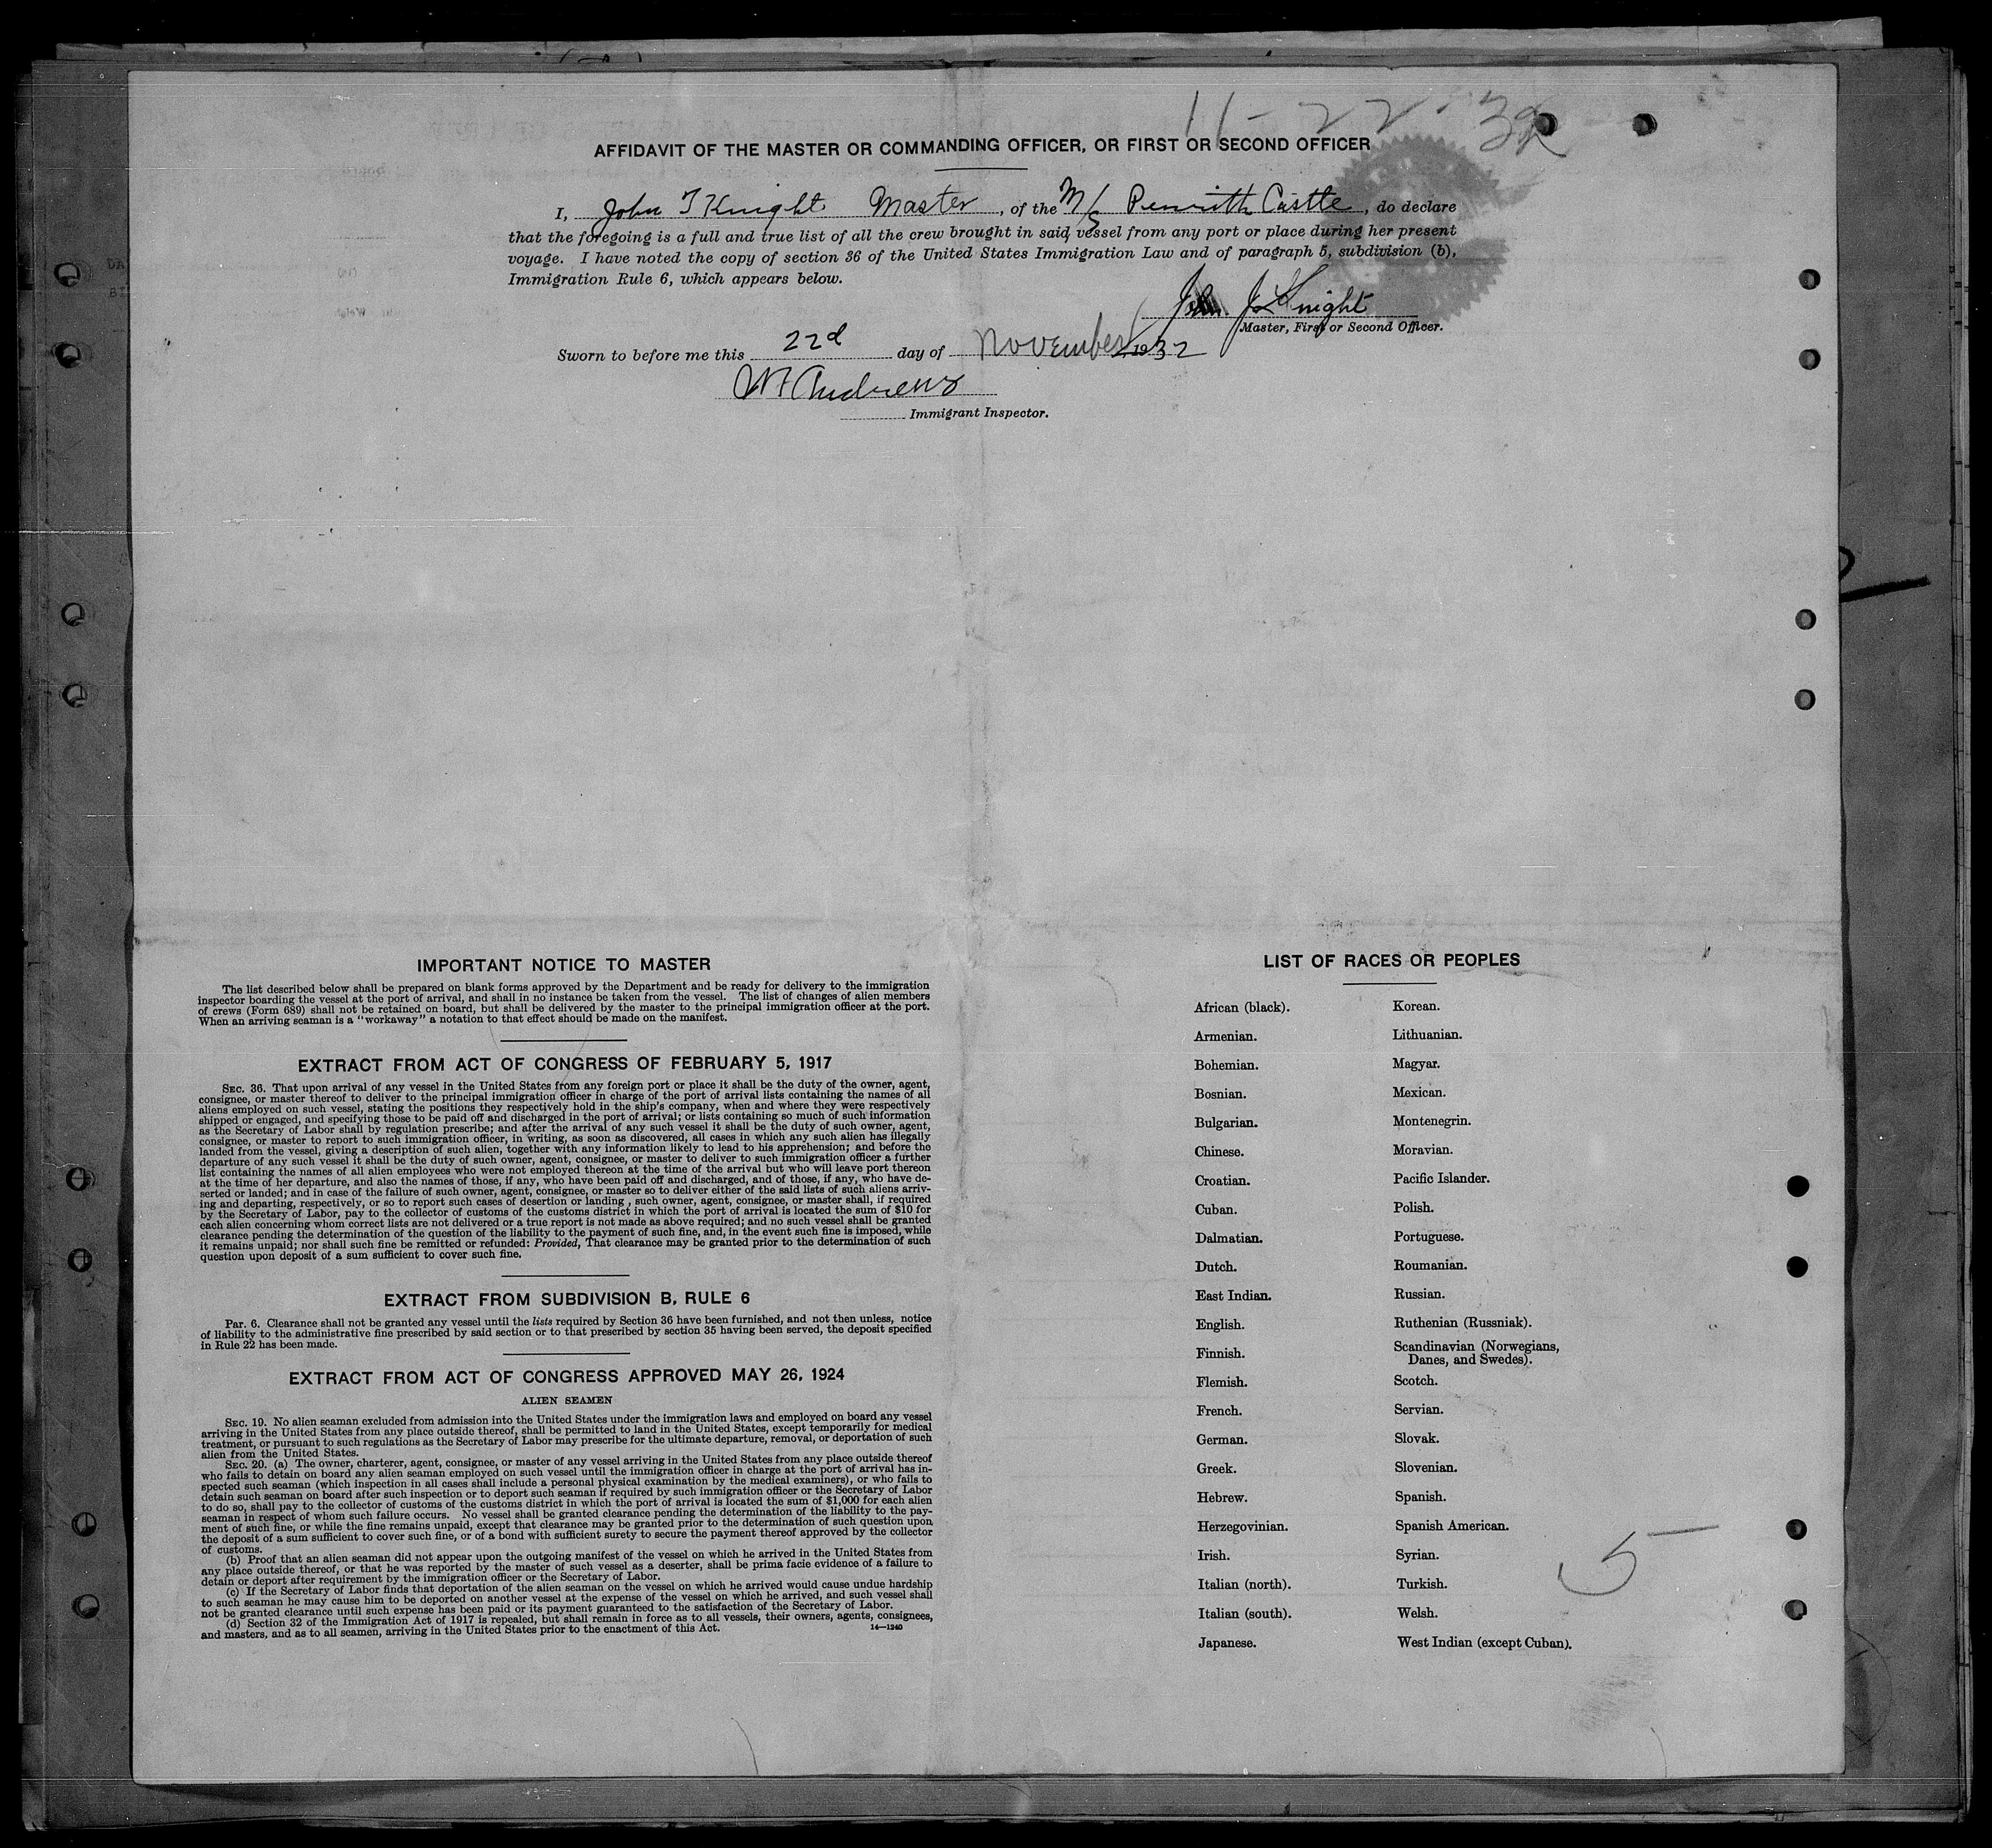 11-22-32
AFFIDAVIT OF THE MASTER OR COMMANDING OFFICER, OR FIRST OR SECOND OFFICER
I, John T Knight Master, of the M/S Penrith Castle, do declare
that the foregoing is a full and true list of all the crew brought in said vessel from any port or place during her present
voyage. I have noted the copy of section 36 of the United States Immigration Law and of paragraph 5, subdivision (b),
Immigration Rule 6, which appears below.
John J Knight
Master, First or Second Officer.
Sworn to before me this 22d day of November, 1932
Andrews
Immigrant Inspector.
IMPORTANT NOTICE TO MASTER
The list described below shall be prepared on blank forms approved by the Department and be ready for delivery to the immigration
inspector boarding the vessel at the port of arrival, and shall in no instance be taken from the vessel. The list of changes of alien members
of crews (Form 689) shall not be retained on board, but shall be delivered by the master to the principal immigration officer at the port.
When an arriving seaman is a "workaway" a notation to that effect should be made on the manifest.
EXTRACT FROM ACT OF CONGRESS OF FEBRUARY 5, 1917
SEC. 36. That upon arrival of any vessel in the United States from any foreign port or place it shall be the duty of the owner, agent,
consignee, or master thereof to deliver to the principal immigration officer in charge of the port of arrival lists containing the names of all
aliens employed on such vessel, stating the positions they respectively hold in the ship's company, when and where they were respectively
shipped or engaged, and specifying those to be paid off and discharged in the port of arrival; or lists containing so much of such information
as the Secretary of Labor shall by regulation prescribe; and after the arrival of any such vessel it shall be the duty of such owner, agent,
consignee, or master to report to such immigration officer, in writing, as soon as discovered, all cases in which any such alien has illegally
landed from the vessel, giving a description of such alien, together with any information likely to lead to his apprehension; and before the
departure of any such vessel it shall be the duty of such owner, agent, consignee, or master to deliver to such immigration officer a further
list containing the names of all alien employees who were not employed thereon at the time of the arrival but who will leave port thereon
at the time of her departure, and also the names of those, if any, who have been paid off and discharged, and of those, if any, who have de-
serted or landed; and in case of the failure of such owner, agent, consignee, or master so to deliver either of the said lists of such aliens arriv-
ing and departing, respectively, or so to report such cases of desertion or landing , such owner, agent, consignee, or master shall, if required
by the Secretary of Labor, pay to the collector of customs of the customs district in which the port of arrival is located the sum of $10 for
each alien concerning whom correct lists are not delivered or a true report is not made as above required; and no such vessel shall be granted
clearance pending the determination of the question of the liability to the payment of such fine, and, in the event such fine is imposed, while
it remains unpaid; nor shall such fine be remitted or refunded: Provided, That clearance may be granted prior to the determination of such
question upon deposit of a sum sufficient to cover such fine.
EXTRACT FROM SUBDIVISION B, RULE 6
Par. 6. Clearance shall not be granted any vessel until the lists required by Section 36 have been furnished, and not then unless, notice
of liability to the administrative fine prescribed by said section or to that prescribed by section 35 having been served, the deposit specified
in Rule 22 has been made.
EXTRACT FROM ACT OF CONGRESS APPROVED MAY 26, 1924
ALIEN SEAMEN
SEC. 19. No alien seaman excluded from admission into the United States under the immigration laws and employed on board any vessel
arriving in the United States from any place outside thereof, shall be permitted to land in the United States, except temporarily for medical
treatment, or pursuant to such regulations as the Secretary of Labor may prescribe for the ultimate departure, removal, or deportation of such
alien from the United States.
SEC. 20. (a) The owner, charterer, agent, consignee, or master of any vessel arriving in the United States from any place outside thereof
who fails to detain on board any alien seaman employed on such vessel until the immigration officer in charge at the port of arrival has in-
spected such seaman (which inspection in all cases shall include a personal physical examination by the medical examiners), or who fails to
detain such seaman on board after such inspection or to deport such seaman if required by such immigration officer or the Secretary of Labor
to do so, shall pay to the collector of customs of the customs district in which the port of arrival is located the sum of $1,000 for each alien
seaman in respect of whom such failure occurs. No vessel shall be granted clearance pending the determination of the liability to the pay-
ment of such fine, or while the fine remains unpaid, except that clearance may be granted prior to the determination of such question upon
the deposit of a sum sufficient to cover such fine, or of a bond with sufficient surety to secure the payment thereof approved by the collector
of customs.
(b) Proof that an alien seaman did not appear upon the outgoing manifest of the vessel on which he arrived in the United States from
any place outside thereof, or that he was reported by the master of such vessel as a deserter, shall be prima facie evidence of a failure to
detain or deport after requirement by the immigration officer or the Secretary of Labor.
(c) If the Secretary of Labor finds that deportation of the alien seaman on the vessel on which he arrived would cause undue hardship
to such seaman he may cause him to be deported on another vessel at the expense of the vessel on which he arrived, and such vessel shall
not be granted clearance until such expense has been paid or its payment guaranteed to the satisfaction of the Secretary of Labor.
(d) Section 32 of the Immigration Act of 1917 is repealed, but shall remain in force as to all vessels, their owners, agents, consignees,
and masters, and as to all seamen, arriving in the United States prior to the enactment of this Act.
14—1240
LIST OF RACES OR PEOPLES
African (black).
Armenian.
Bohemian.
Bosnian.
Bulgarian.
Chinese.
Croatian.
Cuban.
Dalmatian.
Dutch.
East Indian.
English.
Finnish.
Flemish.
French.
German.
Greek.
Hebrew.
Herzegovinian.
Irish.
Italian (north).
Italian (south).
Japanese.
Korean.
Lithuanian.
Magyar.
Mexican.
Montenegrin.
Moravian.
Pacific Islander.
Polish.
Portuguese.
Roumanian.
Russian.
Ruthenian (Russniak).
Scandinavian (Norwegians,
Danes, and Swedes).
Scotch.
Servian.
Slovak.
Slovenian.
Spanish.
Spanish American.
Syrian.
Turkish.
Welsh.
West Indian (except Cuban).
5